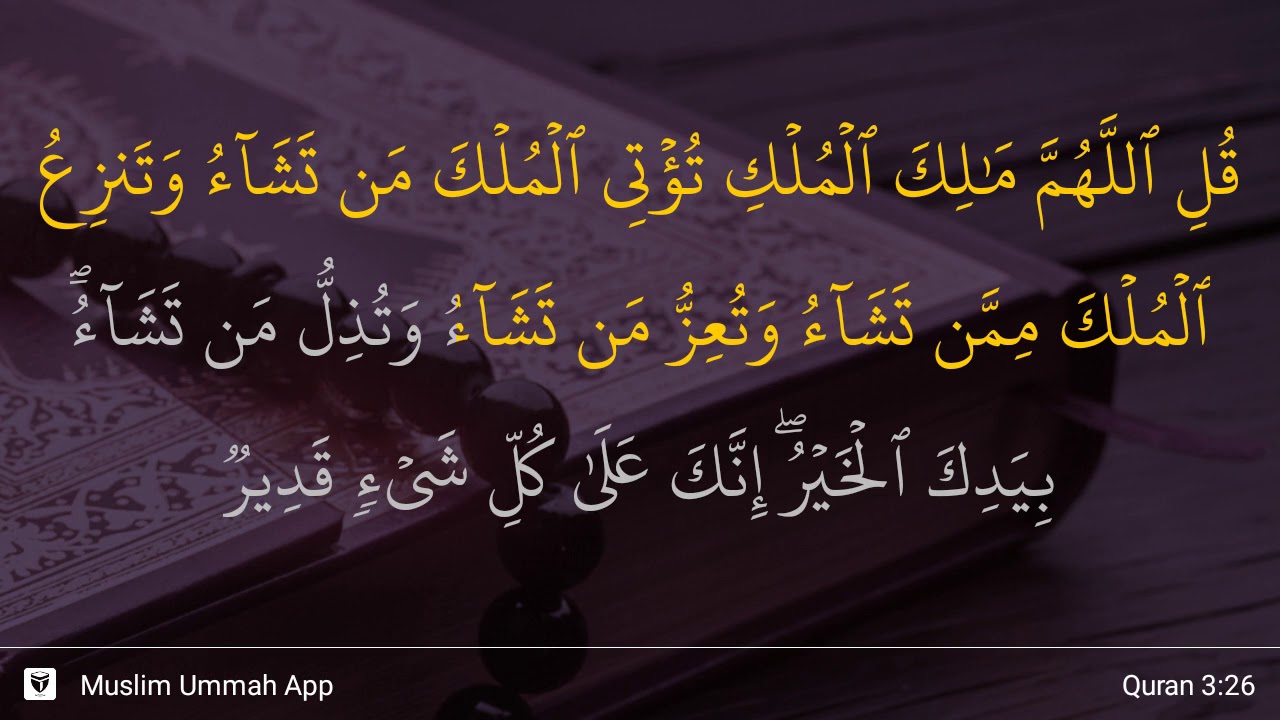 قُلِ ٱللَّهُمَّ مَـٰلِكَ ٱلْمُلْكِ تُؤْتِى ٱلْمُلْكَ مَن تَشَآءُ وَتَنزِعُ
ٱلْمُلْكَ مِمَّن تَشَآءُ وَتُعِزُّ مَن تَشَآءُ وَتُذِلُّ مَن تَشَآءُ ۖ
بِيَدِكَ ٱلْخَيْرُ ۖ إِنَّكَ عَلَىٰ كُلِّ شَىْءٍ قَدِيرٌ
Muslim Ummah App
Quran 3:26